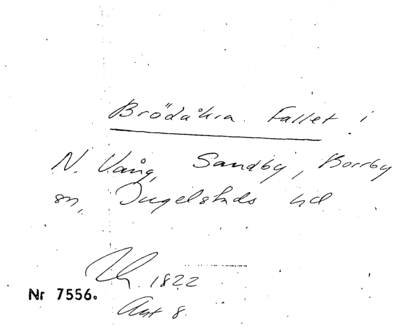 Brödåkra. Fallet i
N. Vång, Sandby, Borrby
sn, Ingelstads hd
1822
Nr 7556.
Akt 8.